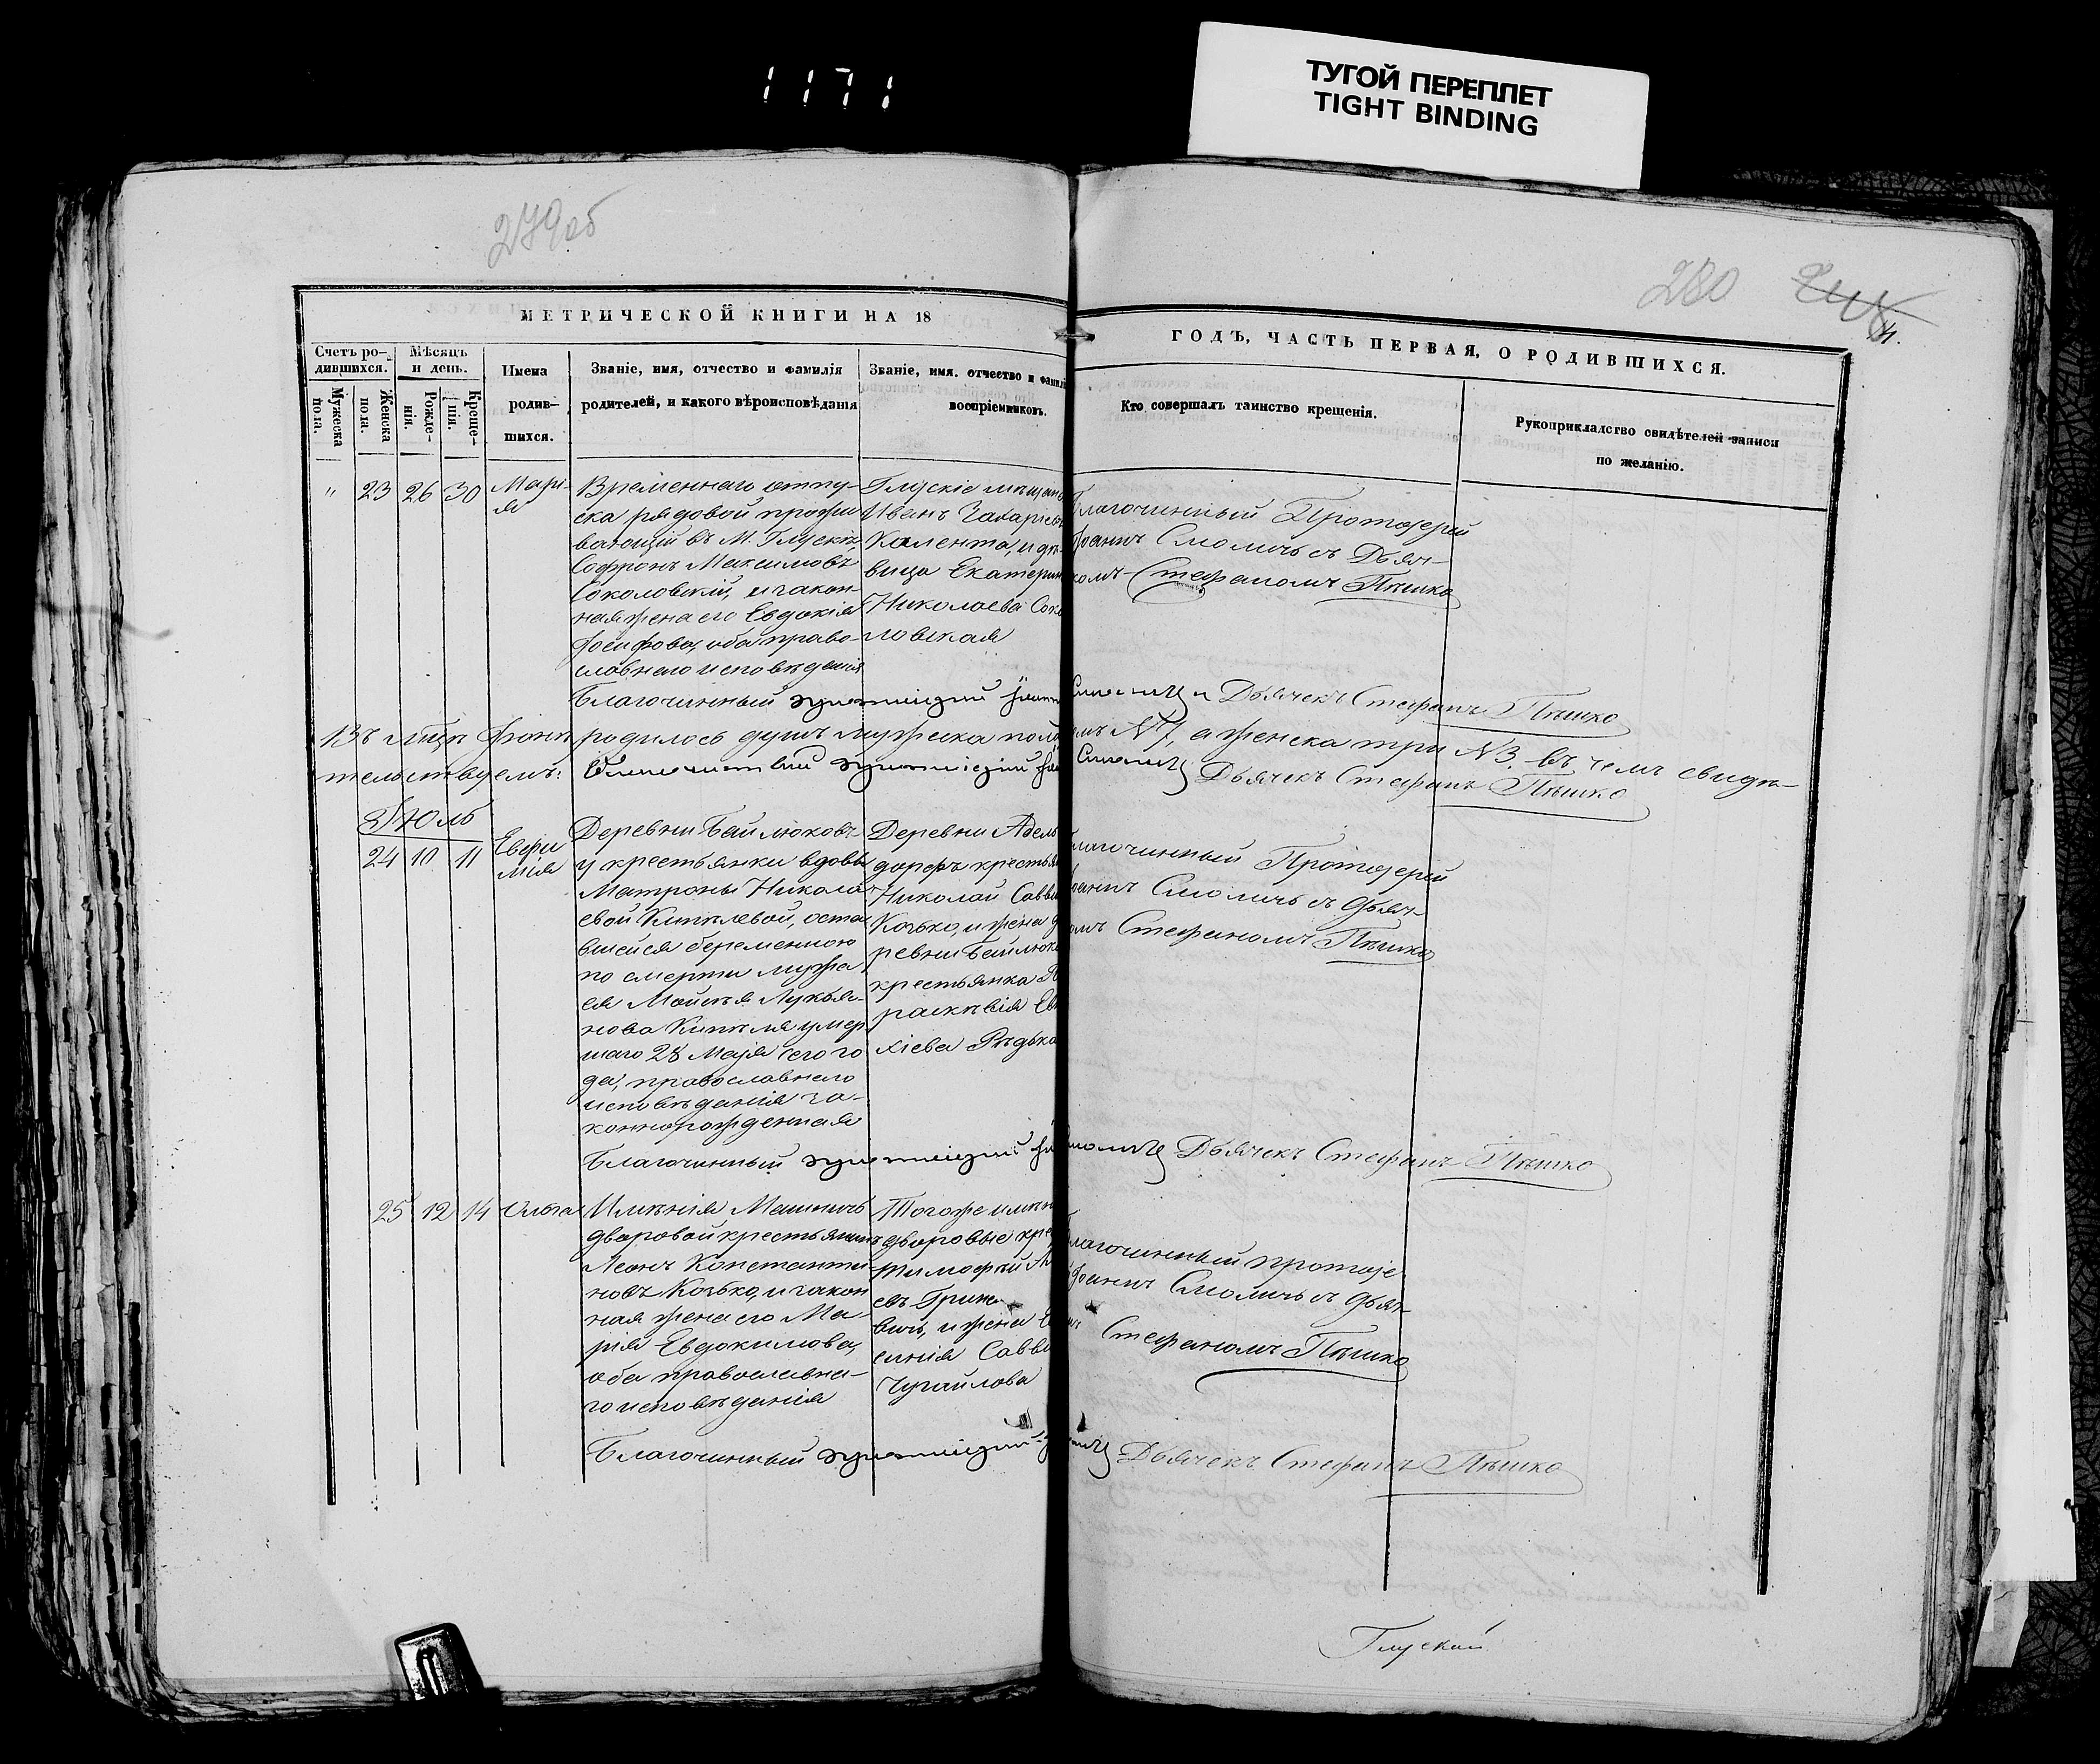 1171
ТУГОЙ ПЕРЕПЛЕТ
TIGHT BINDING
279об
280
МЕТРИЧЕСКОЙ КНИГИ НА 18
ГОДЪ, ЧАСТЬ ПЕРВАЯ, О РОДИВШИХСЯ.
Счетъ ро-
дившихся.
Мужеска
пола.
Женска
пола.
Мѣсяцъ
и день.
Рожде-
нія.
Креще-
нія.
Имена
родив-
шихся.
Званіе, имя, отчество и фамилія
родителей, и какого вѣроисповѣданія
Званіе, имя, отчество и фамилі
воспріемниковъ.
Кто совершалъ таинство крещенія.
Рукоприкладство свидѣтелей записи
по желанію.
" 23 26 30
Марі-
я
Временнаго отпу-
ска рядовой прожи
вающій въ М. Глускѣ,
Софронъ Максимовъ
Соколовскій, и закон-
ная жена его Евдокія
Іосифова, оба право-
славнаго исповѣданія
Глускіе мѣщане
Иванъ Захаріевъ
Калента, и дѣ-
вица Екатерин
Николаева Соко
ловская
Благочинный Протоіерей
Іоаннъ Смоличъ съ Дьяч-
комъ Стефаномъ Пѣшко
Благочинный протоіерей Іоаннъ Смоличъ и Дьячекъ Стефанъ Пѣшко
Въ М-цѣ Іюнѣ родилось душъ мужеска пола
мъ №7, а женска три №3. въ чемъ свидѣ-
тельствуемъ:
протоіерей Смоличъ Дьячекъ Стефанъ Пѣшко
Іюль
24 10 11
Евфи
мія
Деревни Байлюковъ
у крестьянки вдовы
Матроны Никола
евой Кипѣлевой, оста
вшейся беременною
по смерти мужа
ея Моисѣя Лукья-
нова Кипѣля умер
шаго 28 Маія сего го
да, православнаго
исповѣданія за-
коннорожденная
Деревни Адель
дорфъ крестьян
Николай Саввы
Козько, и жена де
ревни Байлюко
крестьянка Па
раскѣвія Ев
хіева Рѣдько
лагочинный Протоіерей
Іоаннъ Смоличъ съ дьяч-
омъ Стефаномъ Пѣшко
Благочинный протоіерей Смоличъ Дьячекъ Стефанъ Пѣшко
25 12 14
Ольга
Имѣнія Машничъ
дворовой крестьянинъ
Леонъ Константи
новъ Козько, и закон
ная жена его Ма-
рія Евдокимова,
оба православна-
го исповѣданія
Тогоже имѣн
дворовые кре
Тимофѣй
евъ Грине
вичъ, и жена
Савви
Чугайлова
лагочинный протоіе
Іоаннъ Смоличъ съ дьяч-
Стефаномъ Пѣшко
Благочинный протоіерей Дьячекъ Стефанъ Пѣшко
Глускай